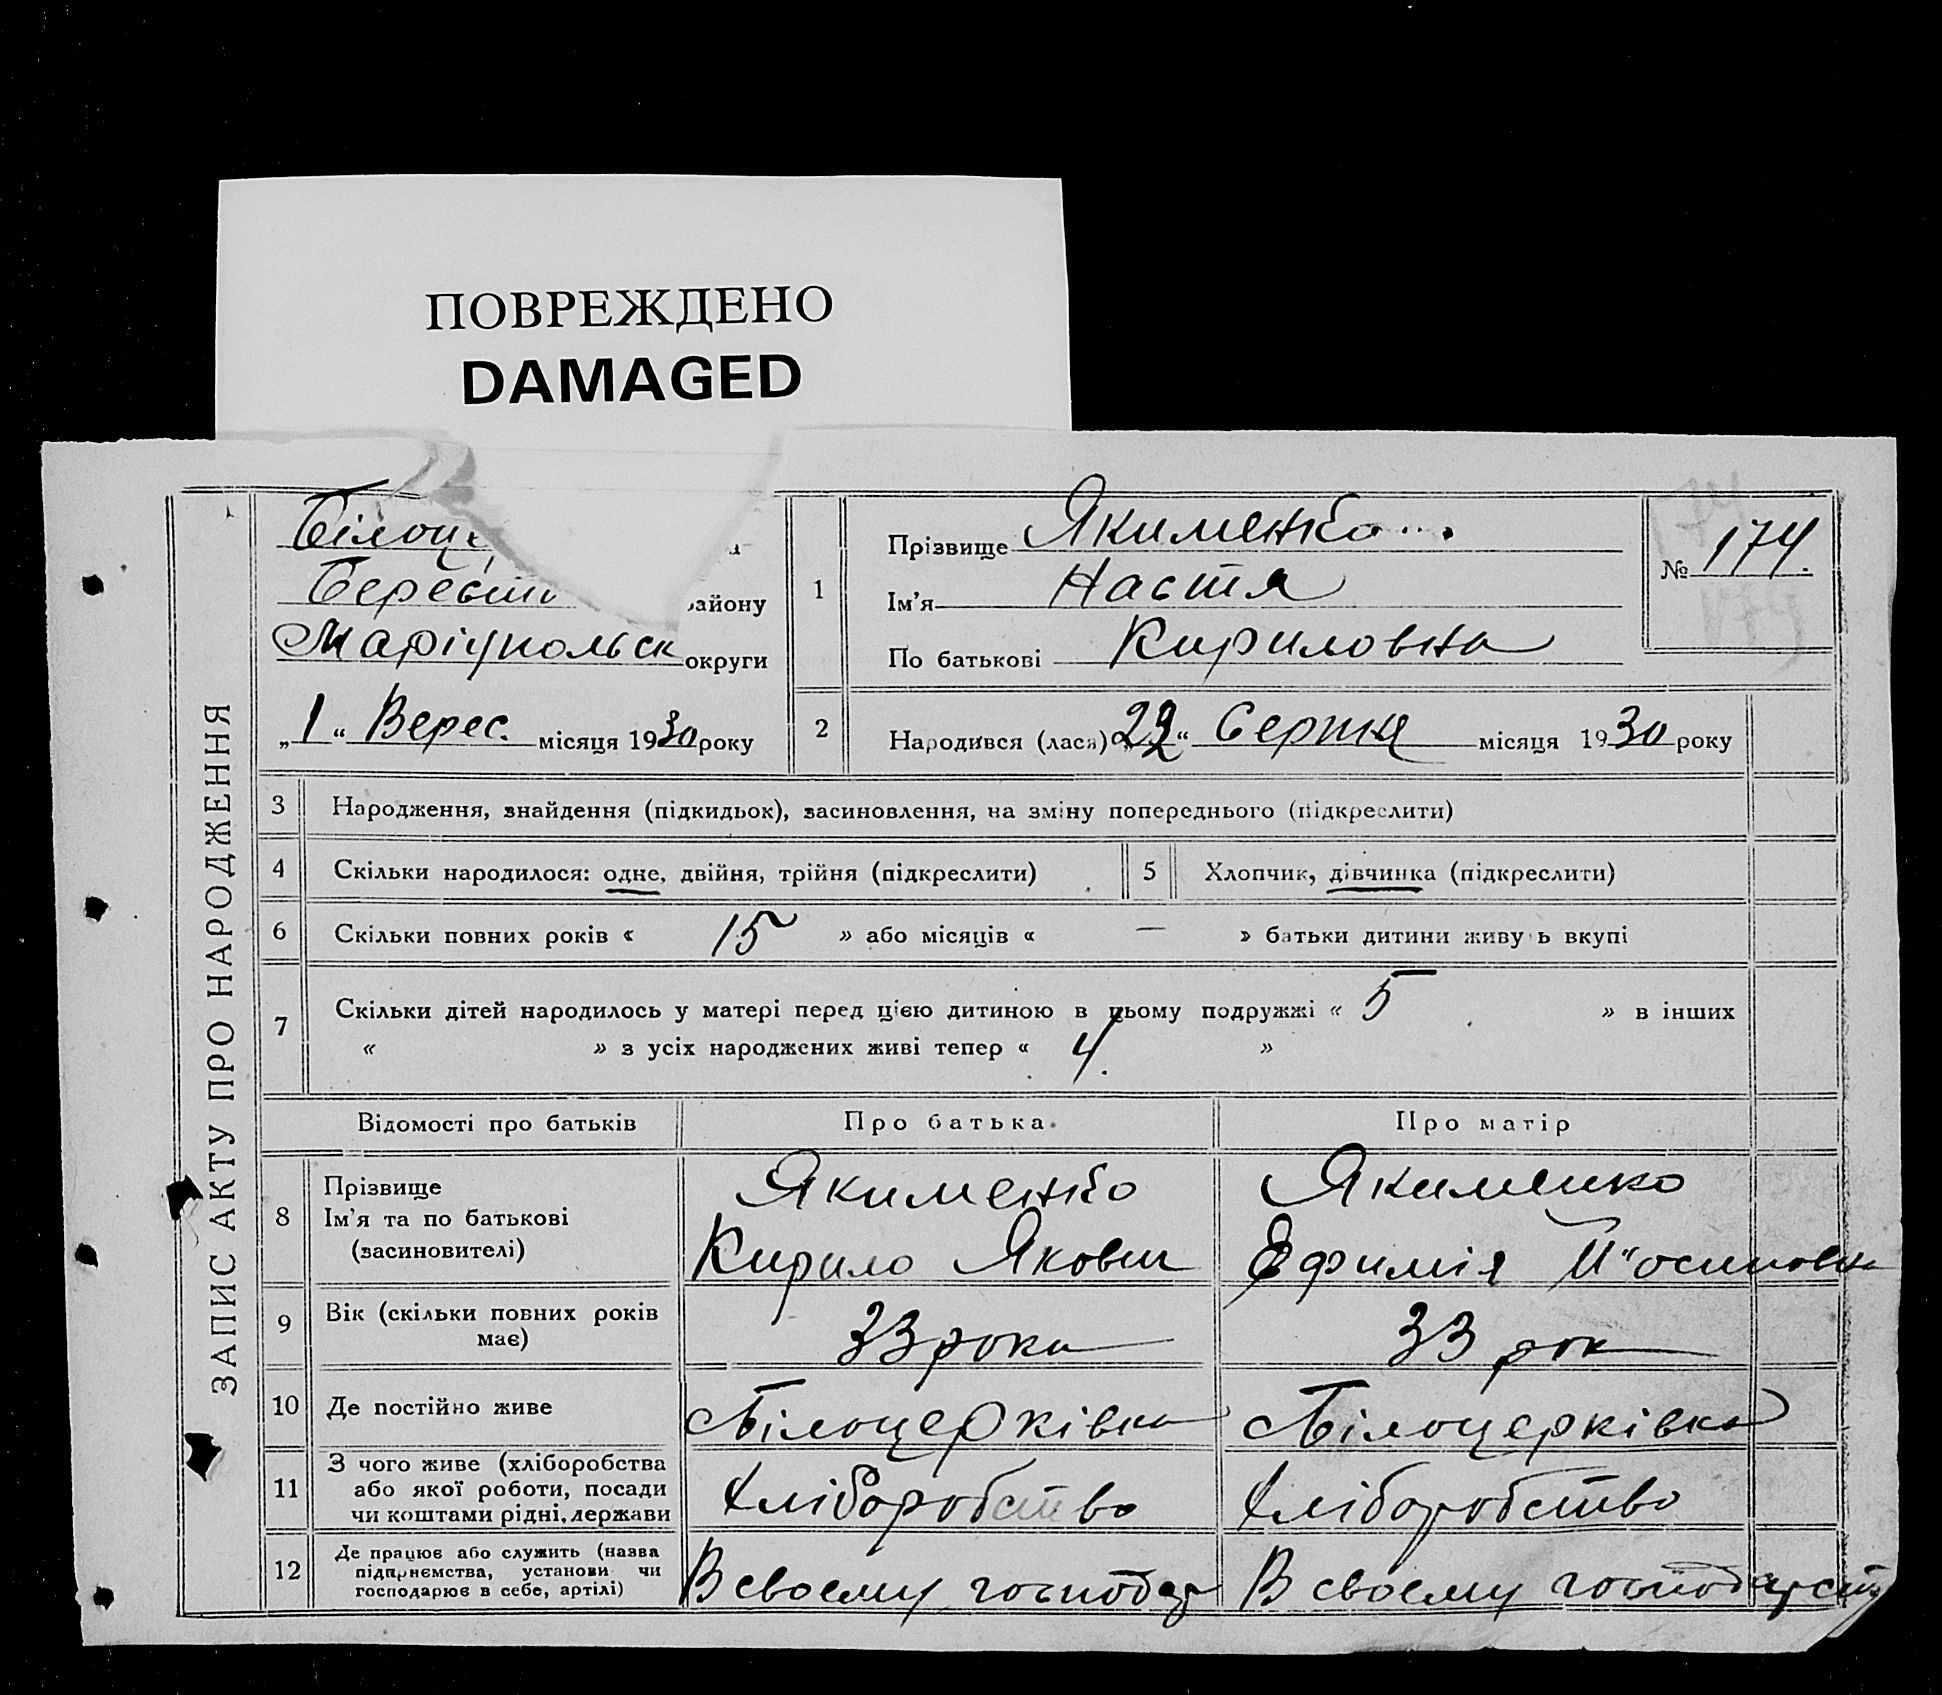 ПОВРЕЖДЕНО
DAMAGED
ЗАПИС АКТУ ПРО НАРОДЖЕННЯ
Білоце
району
Маріупольськ округи
„1“ Верес. місяця 1930 року
1
Прізвище Якименко
Ім'я Настя
По батькові Кириловна
№ 174.
2
Народився (лася) „22“ Серпня місяця 1930 року
3 Народження, знайдення (підкидьок), засиновлення, на зміну попереднього (підкреслити)
4 Скільки народилося: одне, двійня, трійня (підкреслити)
5 Хлопчик, дівчинка (підкреслити)
6 Скільки повних років « 15 » або місяців « — » батьки дитини живуть вкупі
7 Скільки дітей народилось у матері перед цією дитиною в цьому подружжі « 5 » в інших
« » з усіх народжених живі тепер « 4. »
Відомості про батьків Про батька Про матір
8 Прізвище
Ім'я та по батькові
(засиновителі)
Якименко
Кирило Якович
Якименко
Ефимія Йосиповна
9 Вік (скільки повних років
має)
33 рока
33 рок
10 Де постійно живе Білоцерківка Білоцерківка
11 З чого живе (хліборобства
або якої роботи, посади
чи коштами рідні, держави
Хліборобство
Хліборобство
12 Де працює або служить (назва
підприємства, установи чи
господарює в себе, артілі)
В своему господар
В своему господарств